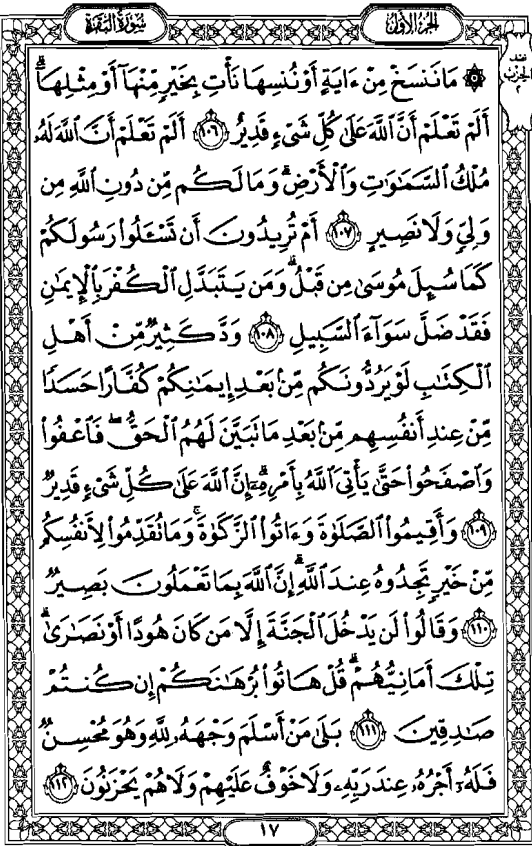 سُورَةُ البَقَرَةِ
الجُزءُ الأَوَّلُ
۞ مَا نَنسَخْ مِنْ ءَايَةٍ أَوْ نُنسِهَا نَأْتِ بِخَيْرٍ مِّنْهَآ أَوْ مِثْلِهَآ ۗ
أَلَمْ تَعْلَمْ أَنَّ ٱللَّهَ عَلَىٰ كُلِّ شَىْءٍ قَدِيرٌ ١٠٦ أَلَمْ تَعْلَمْ أَنَّ ٱللَّهَ لَهُۥ
مُلْكُ ٱلسَّمَٰوَٰتِ وَٱلْأَرْضِ ۗ وَمَا لَكُم مِّن دُونِ ٱللَّهِ مِن
وَلِىٍّ وَلَا نَصِيرٍ ١٠٧ أَمْ تُرِيدُونَ أَن تَسْـَٔلُوا۟ رَسُولَكُمْ
كَمَا سُئِلَ مُوسَىٰ مِن قَبْلُ ۗ وَمَن يَتَبَدَّلِ ٱلْكُفْرَ بِٱلْإِيمَٰنِ
فَقَدْ ضَلَّ سَوَآءَ ٱلسَّبِيلِ ١٠٨ وَدَّ كَثِيرٌ مِّنْ أَهْلِ
ٱلْكِتَٰبِ لَوْ يَرُدُّونَكُم مِّنۢ بَعْدِ إِيمَٰنِكُمْ كُفَّارًا حَسَدًا
مِّنْ عِندِ أَنفُسِهِم مِّنۢ بَعْدِ مَا تَبَيَّنَ لَهُمُ ٱلْحَقُّ ۖ فَٱعْفُوا۟
وَٱصْفَحُوا۟ حَتَّىٰ يَأْتِىَ ٱللَّهُ بِأَمْرِهِۦٓ ۗ إِنَّ ٱللَّهَ عَلَىٰ كُلِّ شَىْءٍ قَدِيرٌ
١٠٩ وَأَقِيمُوا۟ ٱلصَّلَوٰةَ وَءَاتُوا۟ ٱلزَّكَوٰةَ ۚ وَمَا تُقَدِّمُوا۟ لِأَنفُسِكُم
مِّنْ خَيْرٍ تَجِدُوهُ عِندَ ٱللَّهِ ۗ إِنَّ ٱللَّهَ بِمَا تَعْمَلُونَ بَصِيرٌ
١١٠ وَقَالُوا۟ لَن يَدْخُلَ ٱلْجَنَّةَ إِلَّا مَن كَانَ هُودًا أَوْ نَصَٰرَىٰ ۗ
تِلْكَ أَمَانِيُّهُمْ ۗ قُلْ هَاتُوا۟ بُرْهَٰنَكُمْ إِن كُنتُمْ
صَٰدِقِينَ ١١١ بَلَىٰ مَنْ أَسْلَمَ وَجْهَهُۥ لِلَّهِ وَهُوَ مُحْسِنٌ
فَلَهُۥٓ أَجْرُهُۥ عِندَ رَبِّهِۦ وَلَا خَوْفٌ عَلَيْهِمْ وَلَا هُمْ يَحْزَنُونَ ١١٢
١٧